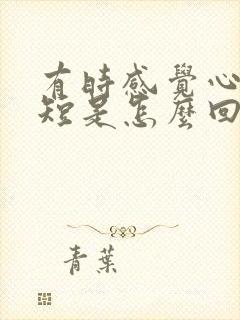 有時感覺心
短是怎麼回
青葉